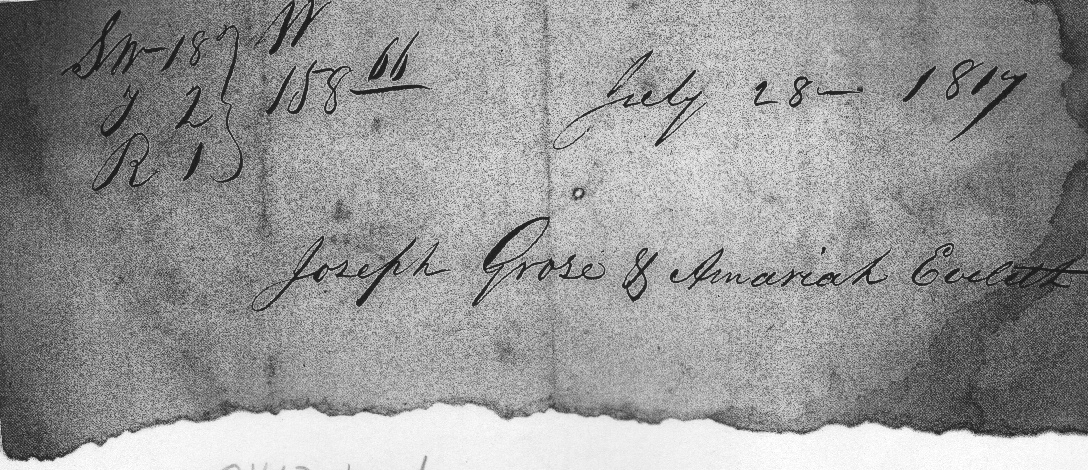 SW-18 } W
T 2 } 158 66 July 28 - 1817
R 1 }
Joseph Grose & Amariah Eveleth